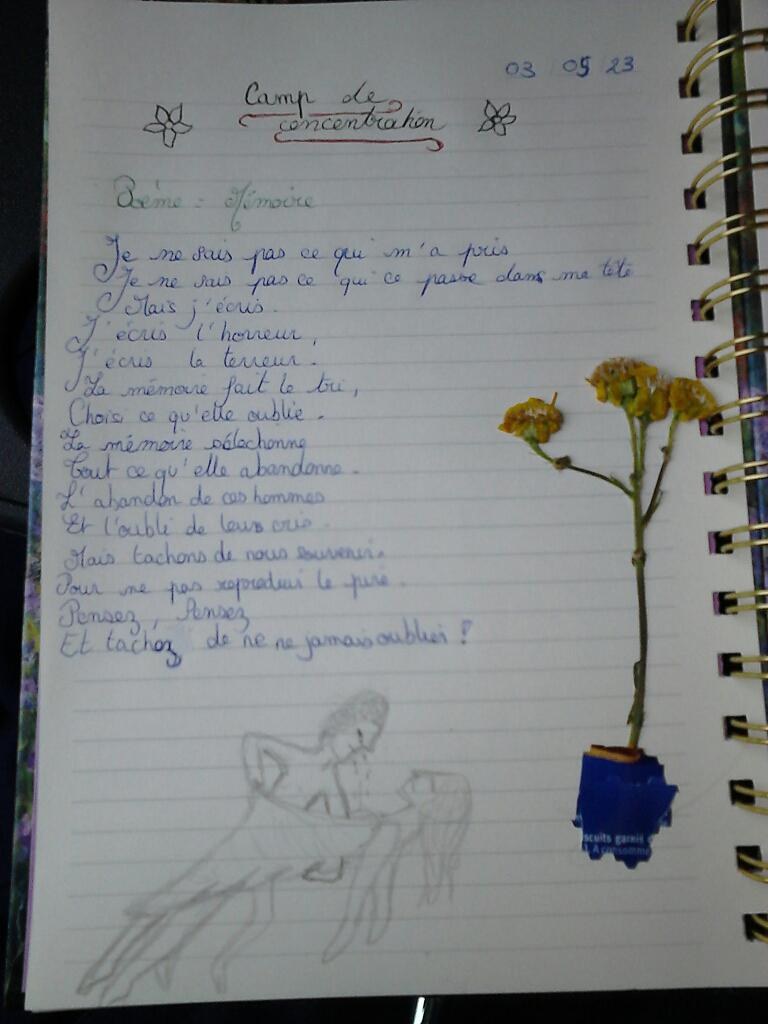 03 05 23
Camp de
concentration
Poème : Mémoire
Je ne sais pas ce qui m'a pris
Je ne sais pas ce qui ce passe dans ma tête
Mais j'écris.
J'écris l'horreur,
J'écris la terreur.
La mémoire fait le tri,
Choisi ce qu'elle oublie.
La mémoire sélectionne
Tout ce qu'elle abandonne.
L'abandon de ces hommes
Et l'oubli de leurs cris.
Mais tachons de nous souvenir.
Pour ne pas reproduir le pire.
Pensez, Pensez
Et tachez de ne ne jamais oublier !
scuits garnis
A consomme